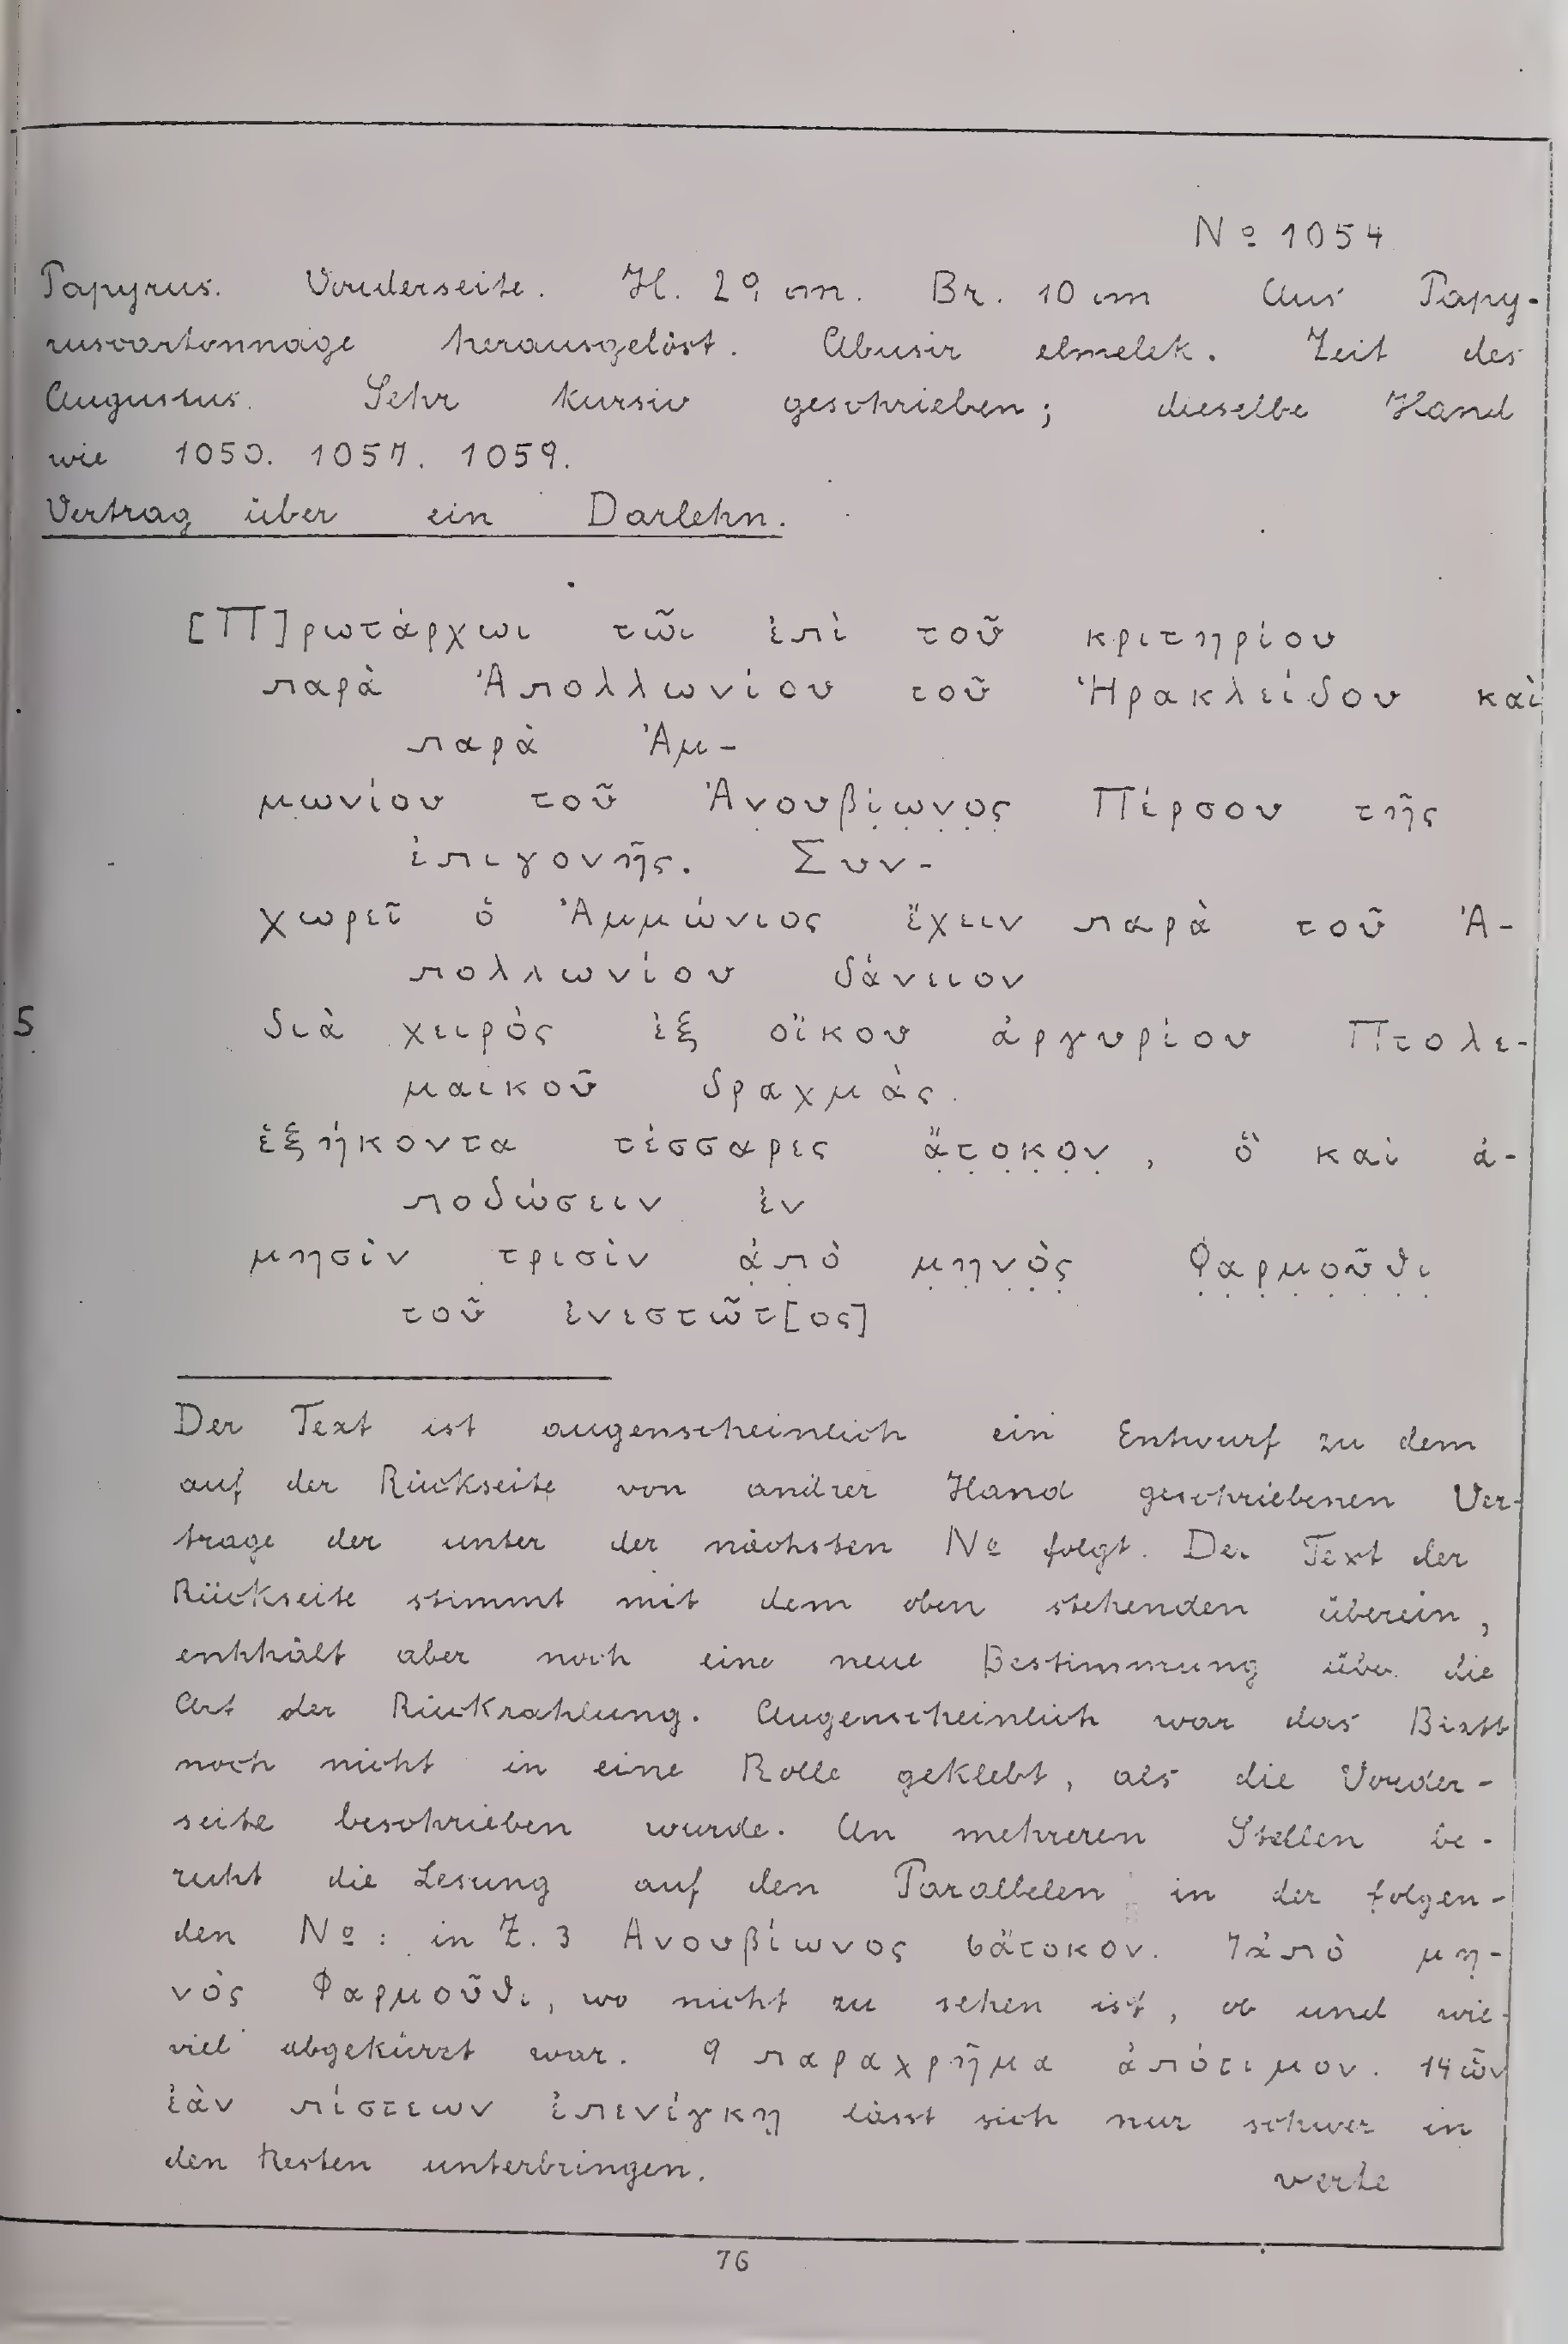 Nº 1054
Papyrus. Vorderseite. H. 29 cm. Br. 10 cm Aus Papy-
ruscartonnage herausgelöst. Abusir elmelek. Zeit des
Augustus. Sehr kursiv geschrieben; dieselbe Hand
wie 1050. 1057. 1059.
Vertrag über ein Darlehn.
[Π]ρωτάρχωι τῶι ἐπὶ τοῦ κριτηρίου
παρὰ Ἀπολλωνίου τοῦ Ἡρακλείδου καὶ
παρὰ Ἀμ-
μωνίου τοῦ Ἀνουβ̣ί̣ω̣ν̣ο̣ς̣ Πέρσου τῆς
ἐπιγονῆς. Συν-
χωρεῖ ὁ Ἀμμώνιος ἔχειν παρὰ τοῦ Ἀ-
πολλωνίου δάνειον
5 διὰ χειρὸς ἐξ οἴκου ἀργυρίου Πτολε-
μαικοῦ δραχμὰς
ἑξήκοντα τέσσαρες ἄ̣τ̣ο̣κ̣ο̣ν̣, ὃ καὶ ἀ-
ποδώσειν ἐν
μησὶν τρισὶν ἀ̣π̣ὸ̣ μ̣η̣ν̣ὸ̣ς̣ Φ̣α̣ρ̣μ̣ο̣ῦ̣θ̣ι̣
τοῦ ἐνεστῶτ[ος]
Der Text ist augenscheinlich ein Entwurf zu dem
auf der Rückseite von andrer Hand geschriebenen Ver-
trage der unter der nächsten Nº folgt. Der Text der
Rückseite stimmt mit dem oben stehenden überein,
enthält aber noch eine neue Bestimmung über die
Art der Rückzahlung. Augenscheinlich war das Blatt
noch nicht in eine Rolle geklebt, als die Vorder-
seite beschrieben wurde. An mehreren Stellen be-
ruht die Lesung auf den Parallelen in der folgen-
den Nº: in Z. 3 Ανουβίωνος 6 ἄτοκον. 7 ἀπὸ μη-
νὸς Φαρμοῦθι, wo nicht zu sehen ist, ob und wie-
viel abgekürzt war. 9 παραχρῆμα ἀπότιμον. 14 ὧν
ἐὰν πίστεων ἐπενέγκῃ lässt sich nur schwer in
den Resten unterbringen.
verte
76